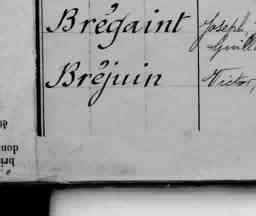 Brégaint Joseph,
Guill
Bréjuin Victor,